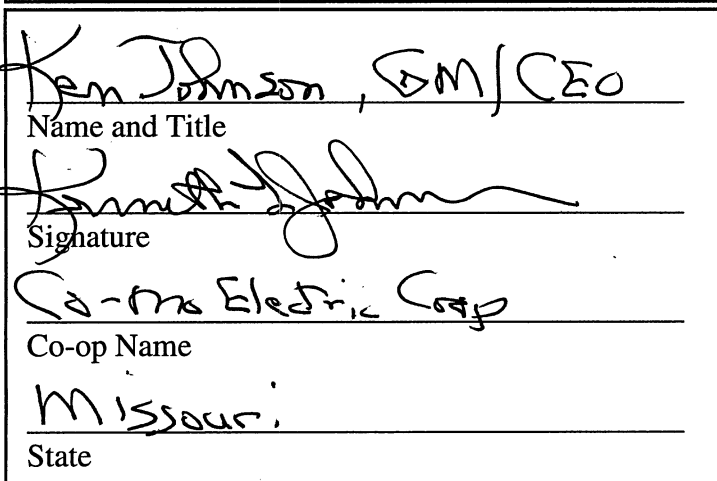 Ken Johnson, GM/CEO
Name and Title
Kenneth L Johnson
Signature
Co-mo Electric Coop
Co-op Name
Missouri
State